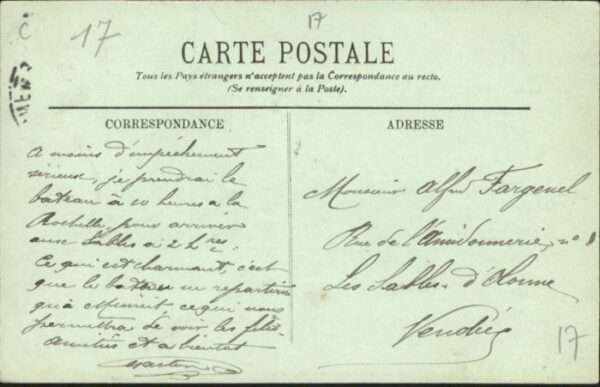 C
17
17
CARTE POSTALE
Tous les Pays étrangers n'acceptent pas la Correspondance au recto.
(Se renseigner à la Poste).
CORRESPONDANCE
A moins d'empêchement
sérieux, je prendrai le
bateau à 10 heures à la
Rochelle, pour arriver
aux Sables à 2 hres.
Ce qui est charmant, c'est
que le bateau ne repartira
qu'à minuit ce qui nous
permettra de voir les fêtes
amitiés et a bientôt
ADRESSE
Monsieur Alfred Fargenel
Rue de l'Amidonnerie, no 1
Les Sables-d'Olonne
Vendée
17